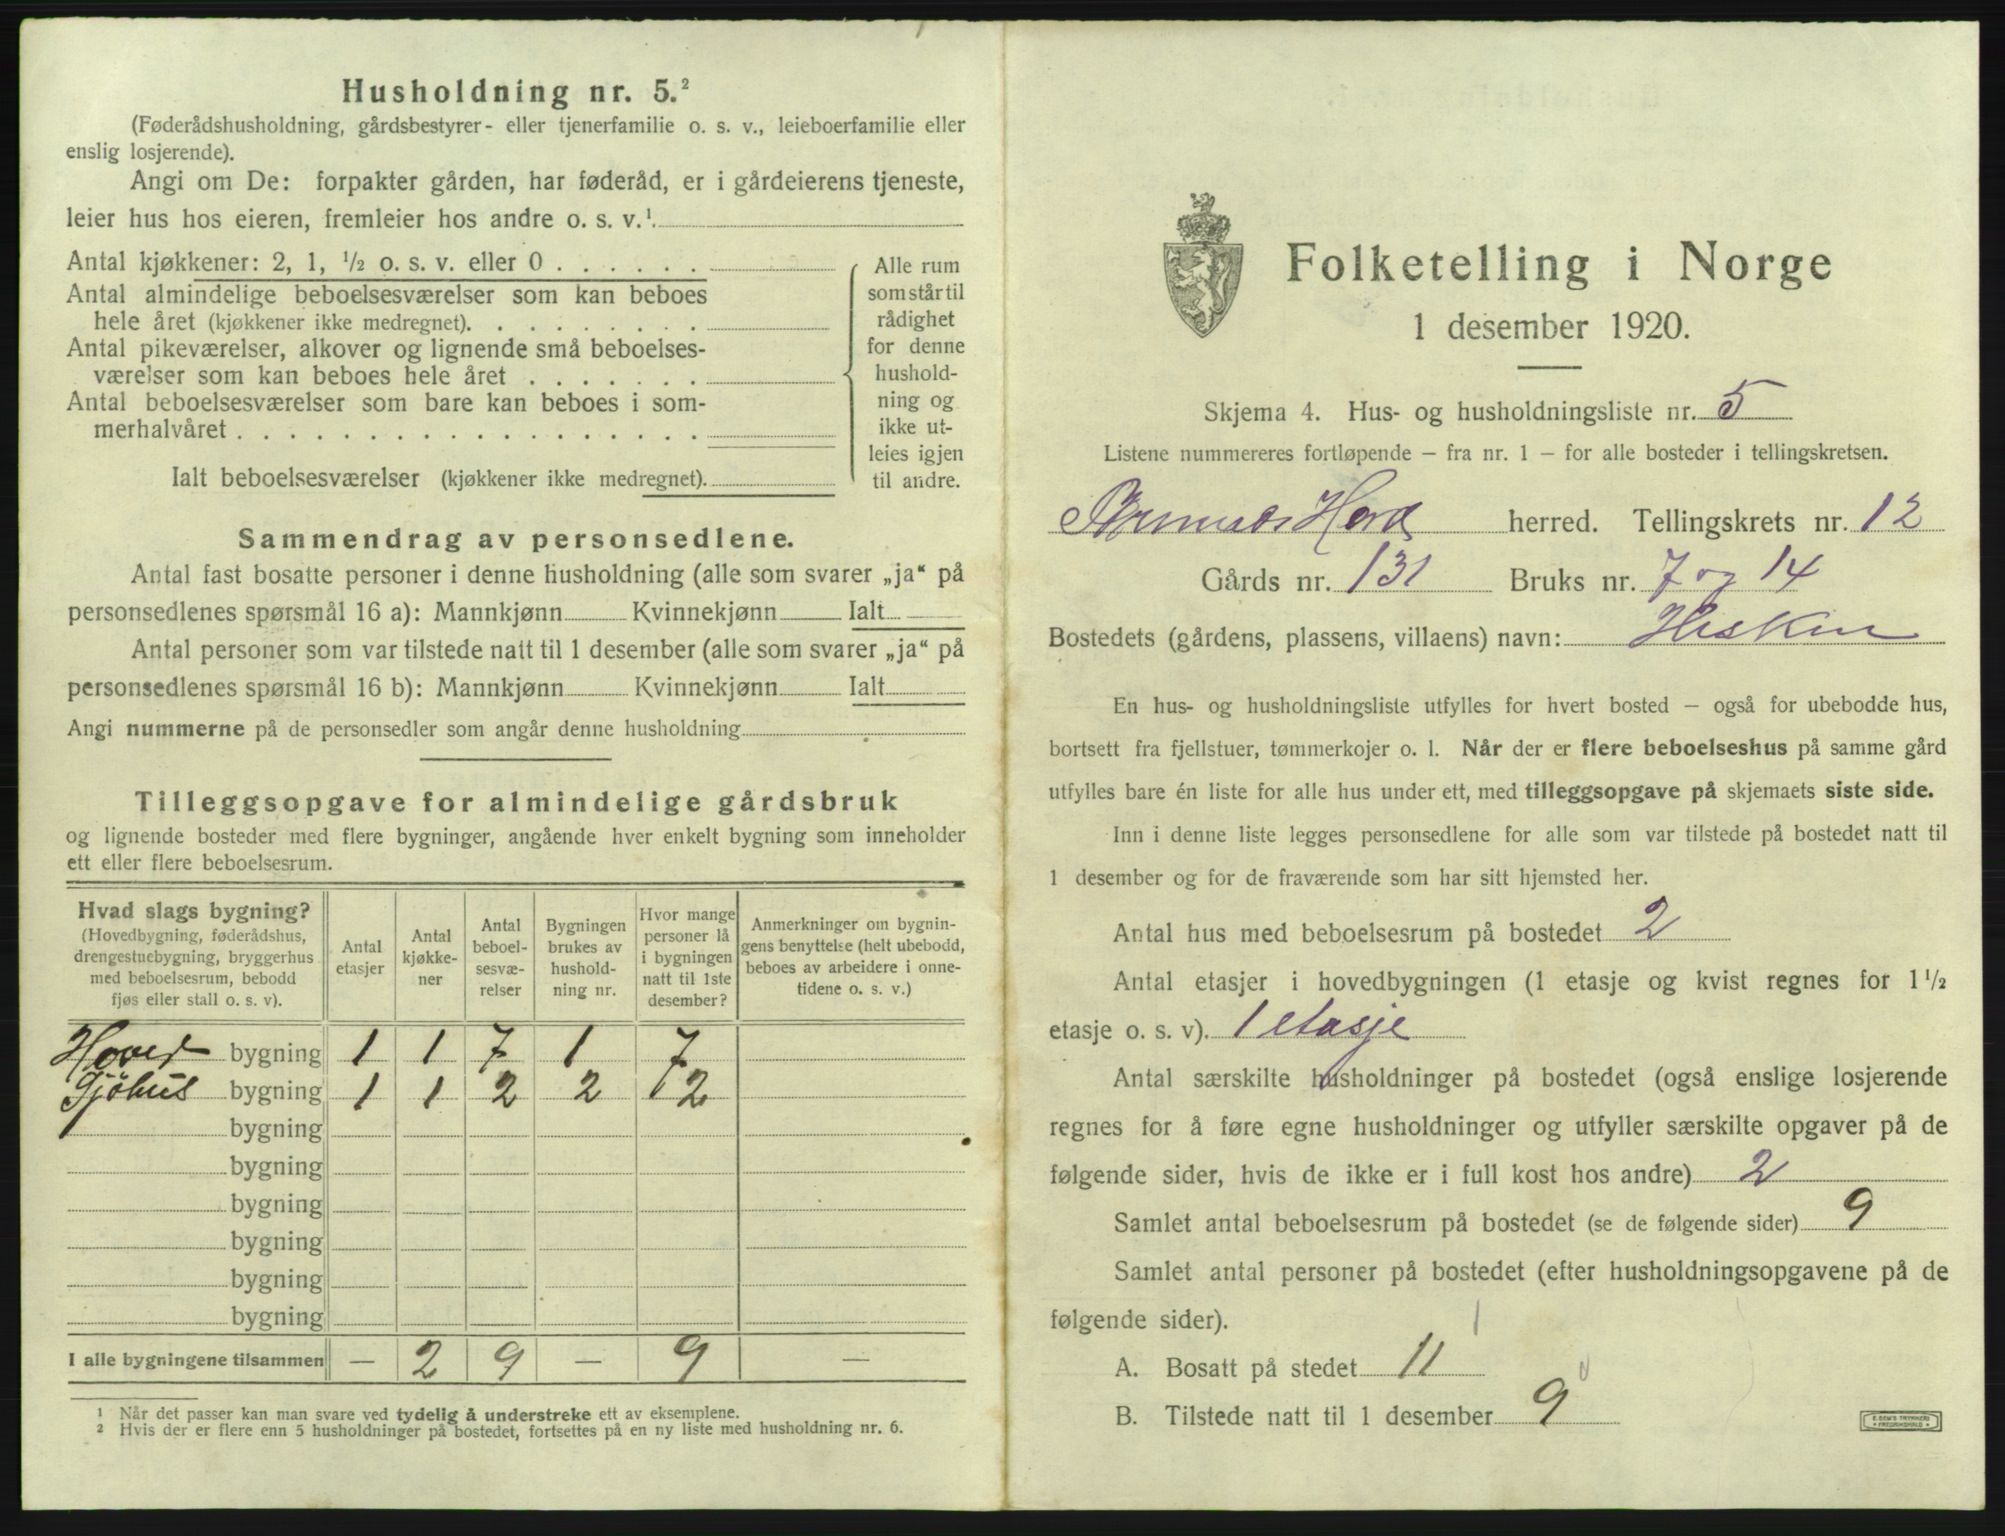 Husholdning nr. 5.²
(Føderådshusholdning, gårdsbestyrer- eller tjenerfamilie o. s. v., leieboerfamilie eller
enslig losjerende).
Angi om De: forpakter gården, har føderåd, er i gårdeierens tjeneste,
leier hus hos eieren, fremleier hos andre o. s. v.¹.
Antal kjøkkener: 2, 1, ½ o. s. v. eller 0 . . . . . .
Antal almindelige beboelsesværelser som kan beboes
hele året (kjøkkener ikke medregnet). . . . . . . . .
Antal pikeværelser, alkover og lignende små beboelses-
værelser som kan beboes hele året . . . . . . .
Antal beboelsesværelser som bare kan beboes i som-
merhalvåret . . . . . . . . . . . . . . . . . .
Ialt beboelsesværelser (kjøkkener ikke medregnet).
Alle rum
som står til
rådighet
for denne
hushold-
ning og
ikke ut-
leies igjen
til andre.
Sammendrag av personsedlene.
Antal fast bosatte personer i denne husholdning (alle som svarer „ja“ på
personsedlenes spørsmål 16 a): Mannkjønn Kvinnekjønn Ialt
Antal personer som var tilstede natt til 1 desember (alle som svarer „ja“ på
personsedlenes spørsmål 16 b): Mannkjønn Kvinnekjønn Ialt
Angi nummerne på de personsedler som angår denne husholdning
Tilleggsopgave for almindelige gårdsbruk
og lignende bosteder med flere bygninger, angående hver enkelt bygning som inneholder
ett eller flere beboelsesrum.
Hvad slags bygning?
(Hovedbygning, føderådshus,
drengestuebygning, bryggerhus
med beboelsesrum, bebodd
fjøs eller stall o. s. v).
Antal
etasjer
Antal
kjøkke-
ner
Antal
beboel-
sesvæ-
relser
Bygningen
brukes av
hushold-
ning nr.
Hvor mange
personer lå
i bygningen
natt til 1ste
desember?
Anmerkninger om bygnin-
gens benyttelse (helt ubebodd,
beboes av arbeidere i onne-
tidene o. s. v.)
Hoved bygning 1 1 7 1 7
Sjöhus bygning 1 1 2 2 2
bygning
bygning
bygning
bygning
bygning
bygning
I alle bygningene tilsammen — 2 9 — 9 —
1 Når det passer kan man svare ved tydelig å understreke ett av eksemplene.
2 Hvis der er flere enn 5 husholdninger på bostedet, fortsettes på en ny liste med husholdning nr. 6.
Folketelling i Norge
1 desember 1920.
Skjema 4. Hus- og husholdningsliste nr. 5
Listene nummereres fortløpende – fra nr. 1 – for alle bosteder i tellingskretsen.
herred. Tellingskrets nr. 12
Gårds nr. 131 Bruks nr. 7 og 14
Bostedets (gårdens, plassens, villaens) navn:
En hus- og husholdningsliste utfylles for hvert bosted – også for ubebodde hus,
bortsett fra fjellstuer, tømmerkojer o. l. Når der er flere beboelseshus på samme gård
utfylles bare én liste for alle hus under ett, med tilleggsopgave på skjemaets siste side.
Inn i denne liste legges personsedlene for alle som var tilstede på bostedet natt til
1 desember og for de fraværende som har sitt hjemsted her.
Antal hus med beboelsesrum på bostedet 2
Antal etasjer i hovedbygningen (1 etasje og kvist regnes for 1 ½
etasje o. s. v). 1 etasje
Antal særskilte husholdninger på bostedet (også enslige losjerende
regnes for å føre egne husholdninger og utfyller særskilte opgaver på de
følgende sider, hvis de ikke er i full kost hos andre) 2
Samlet antal beboelsesrum på bostedet (se de følgende sider) 9
Samlet antal personer på bostedet (efter husholdningsopgavene på de
følgende sider).
A. Bosatt på stedet 11
B. Tilstede natt til 1 desember 9